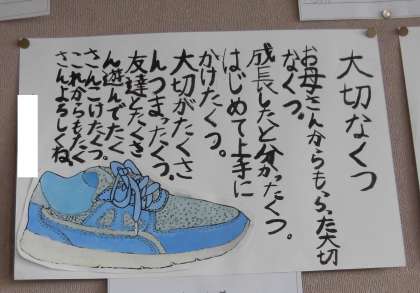 大切なくつ
お母さんからもらった大切
なくつ。
成長したと分かったくつ。
はじめて上手に
かけたくつ。
大切がたくさ
んつまったくつ。
友達とたくさ
ん遊んでたく
さんこけたくつ。
これからもたく
さんよろしくね